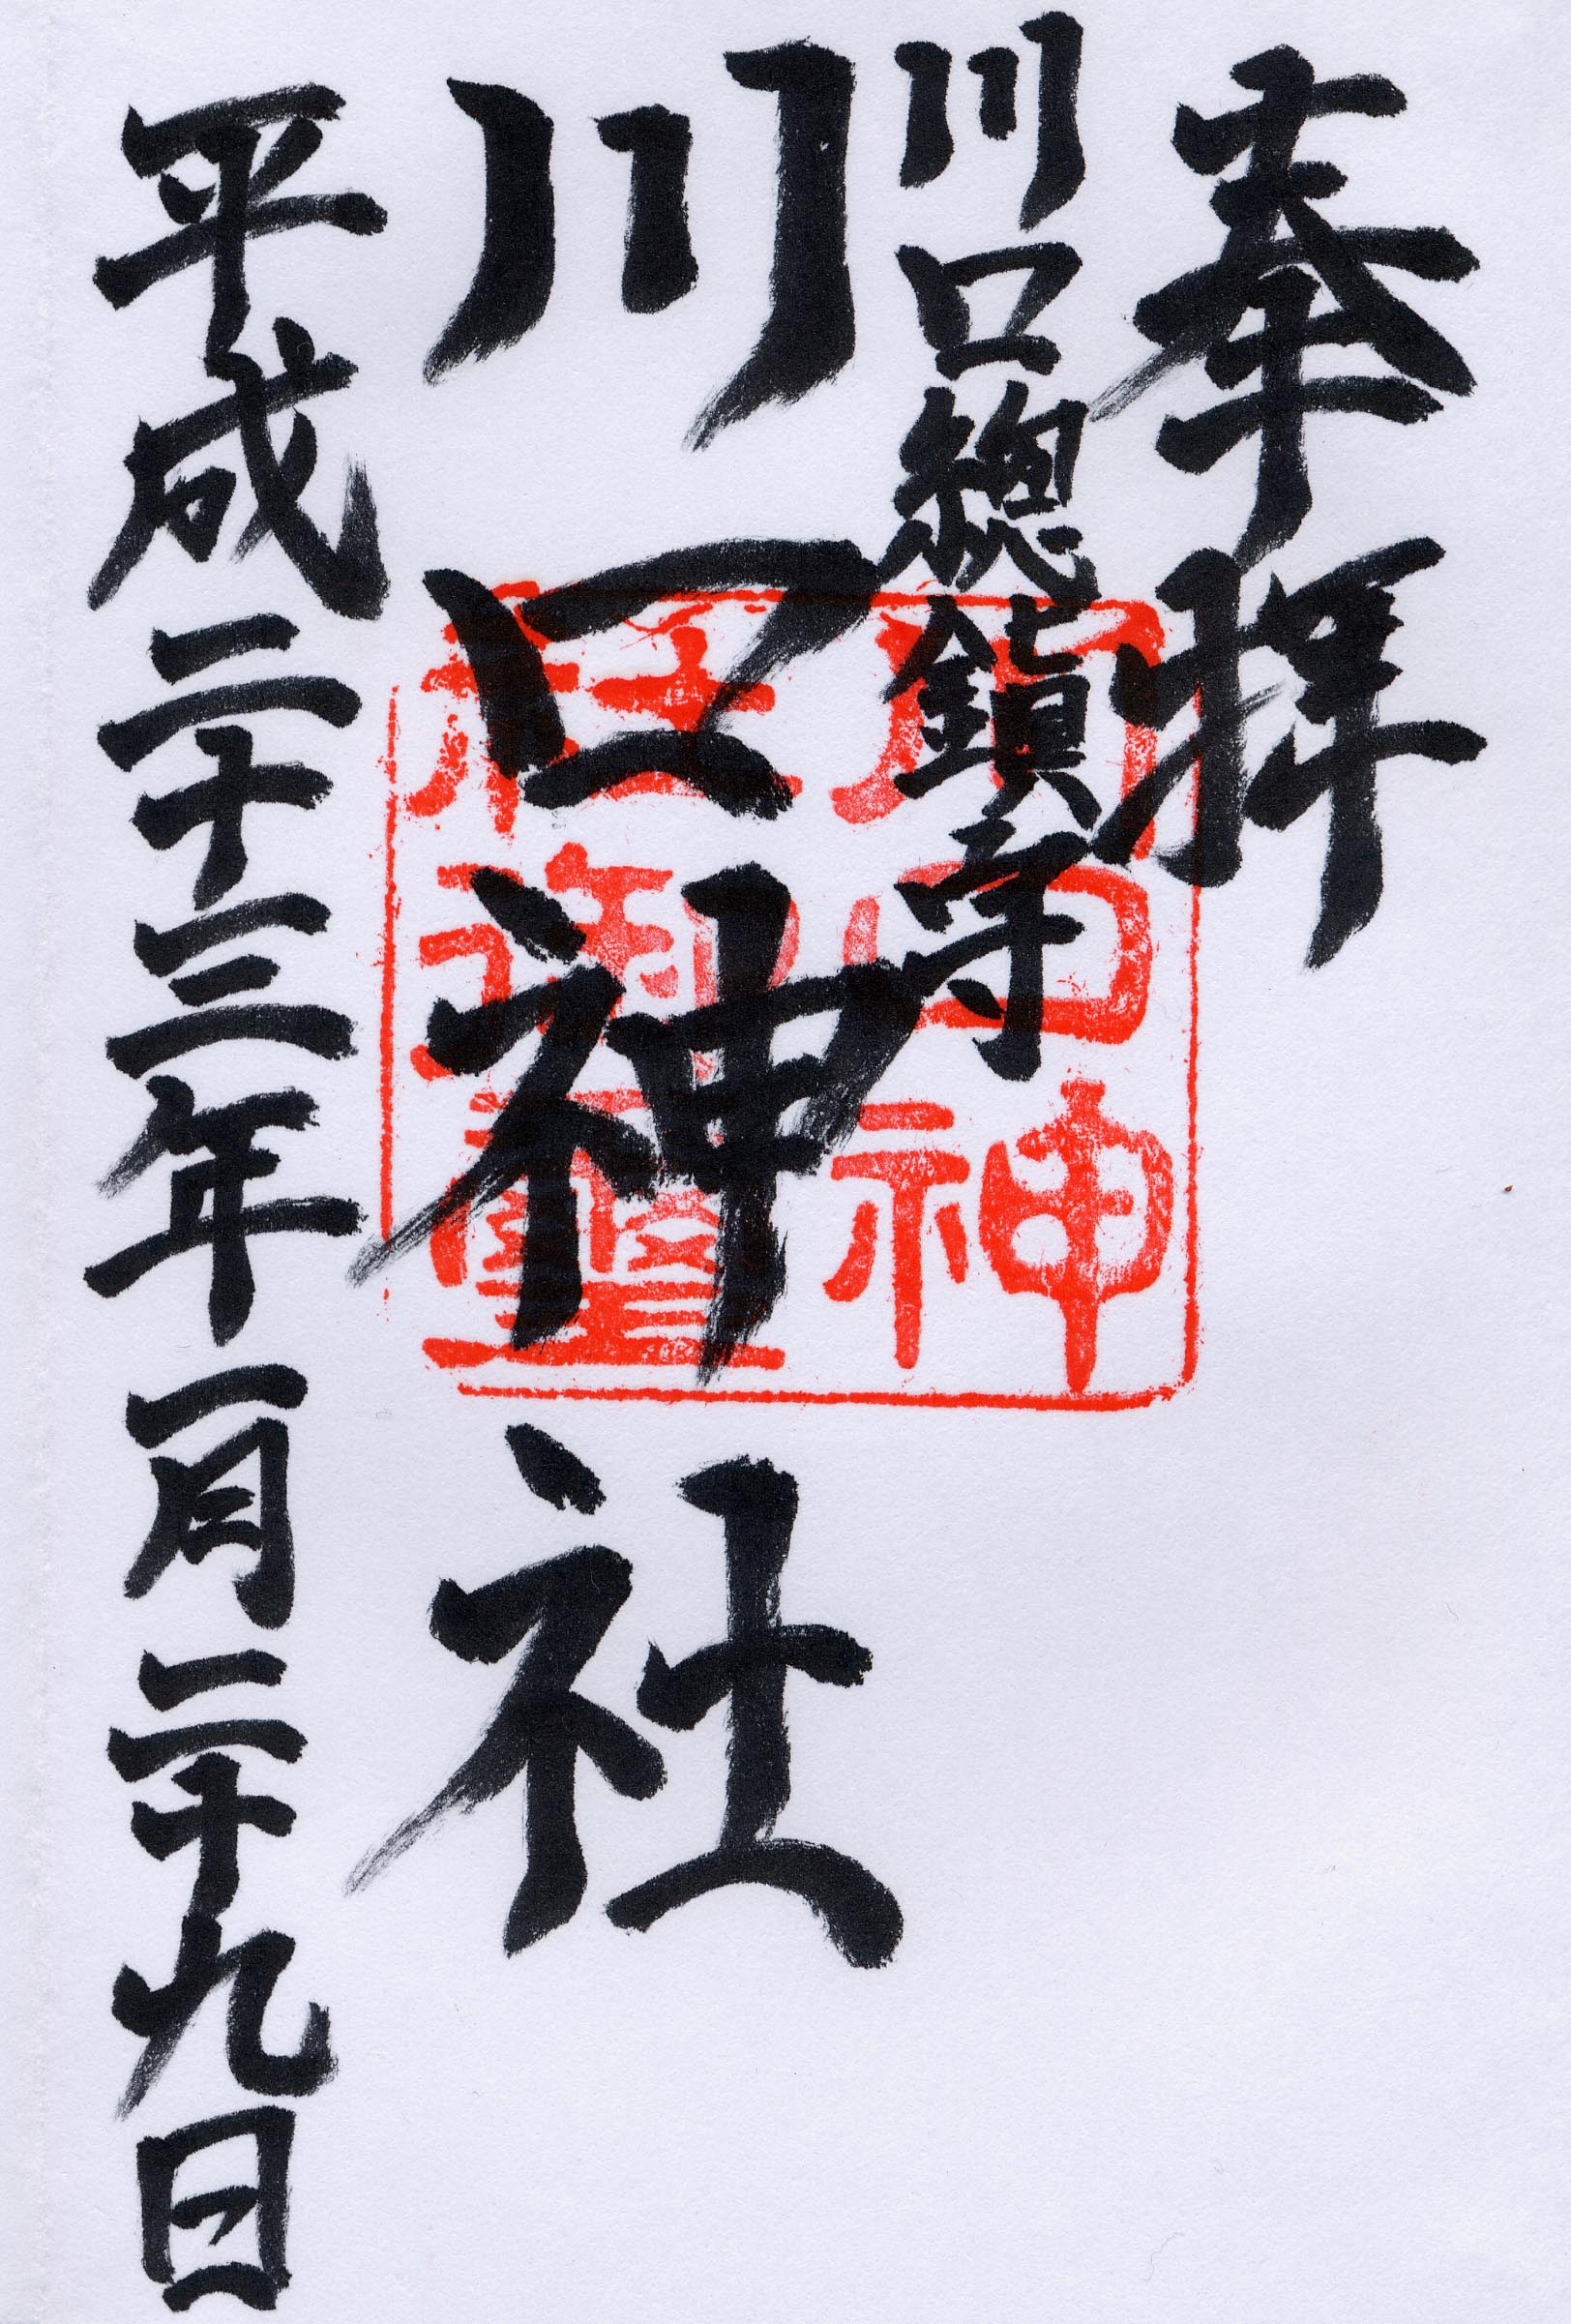 奉拝
川口總鎭守
川口神社
平成二十三年一月二十九日
川口神
社御璽